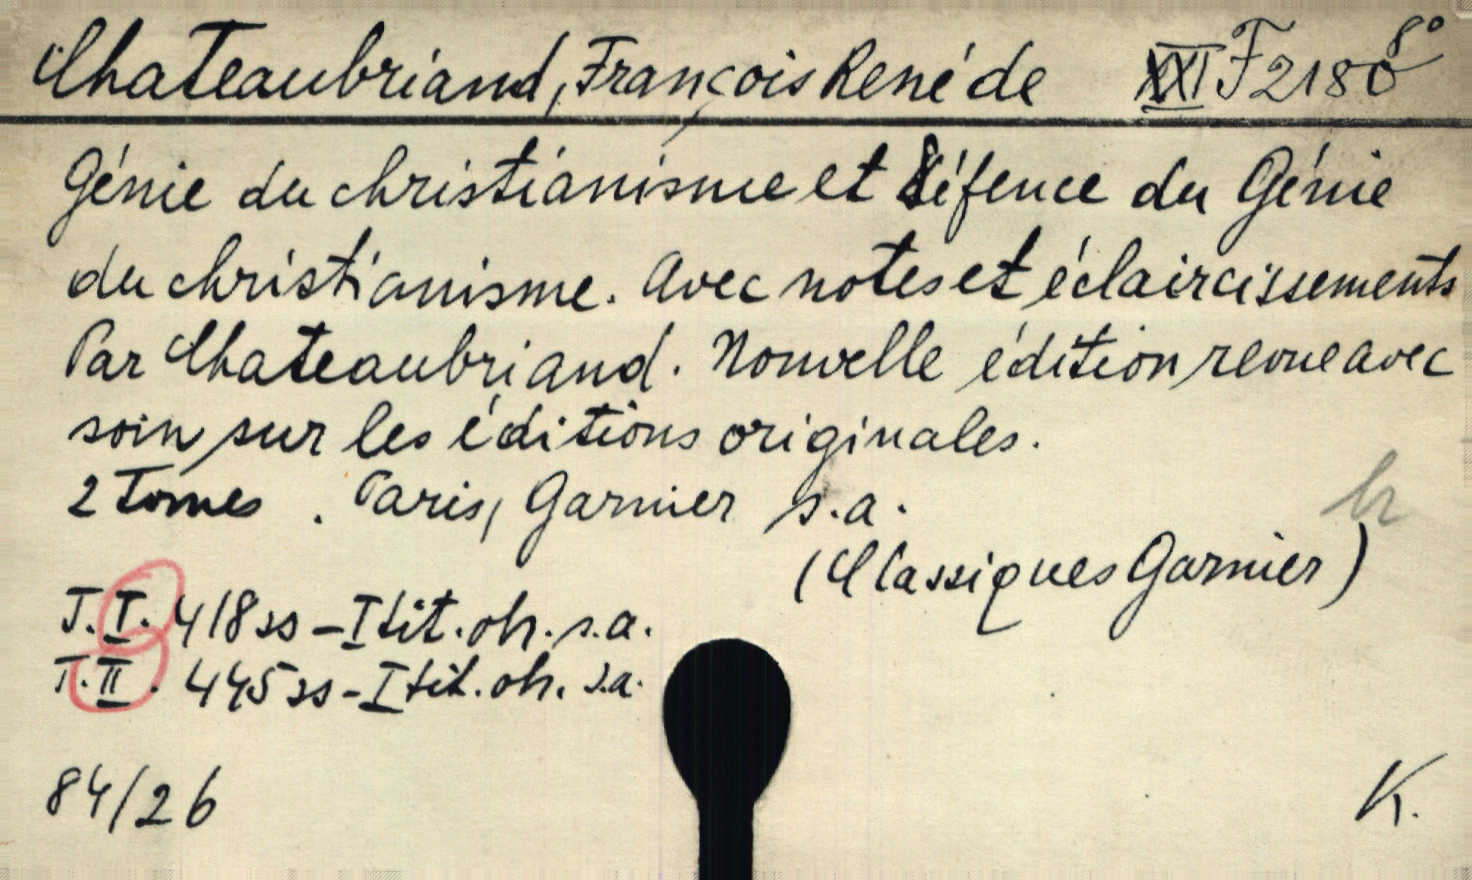 Chateaubriand, François René de XXI F 2180 8°
Génie du christianisme et défence du Génie
du christianisme. Avec notes et éclaircissements
Par Chateaubriand. Nouvelle édition revue avec
soin sur les éditions originales.
2 Tomes. Paris, Garnier s.a.
(Classiques Garnier)
T. I. 418 ss - I tit. oh. s.a.
T. II. 445 ss - I tit. oh. s.a.
84/26 K.